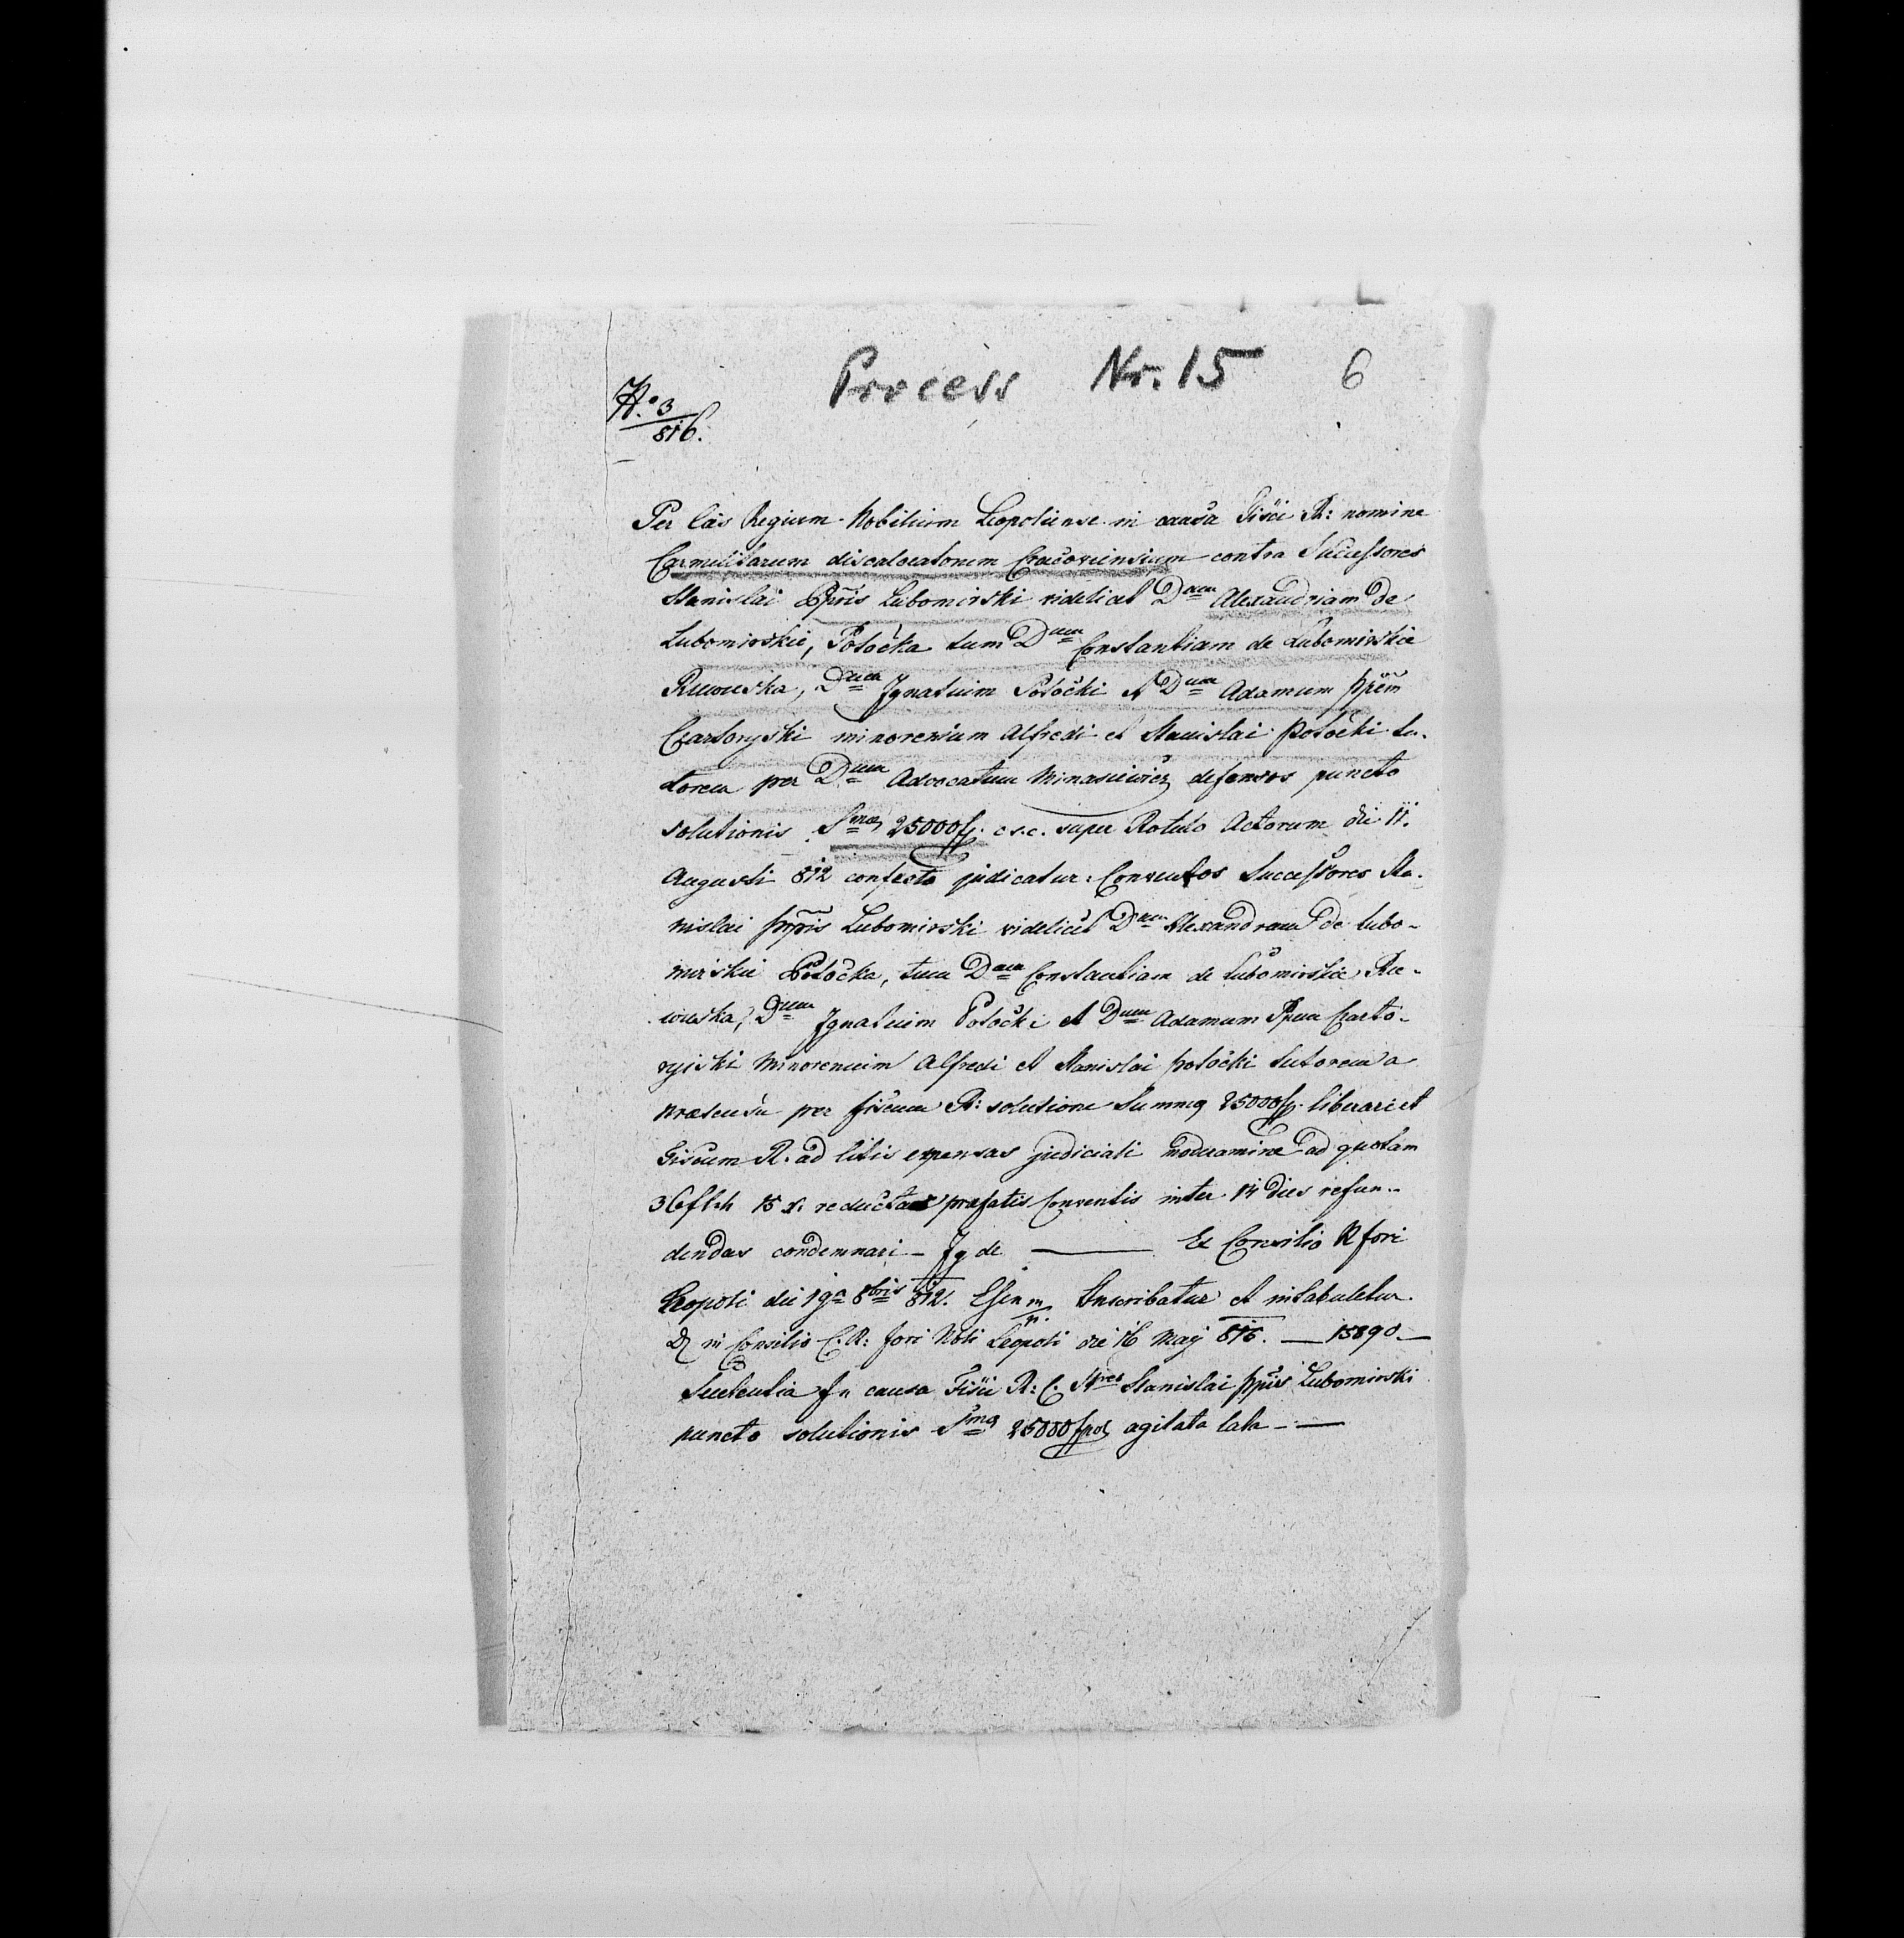 Process Nr. 15 6
No. 3
816.
Per Cæs Regium Nobilium Leopoliense in causa Fisci R: nomine
Carmelitarum discalceatorum Cracoviensium contra Successores
Stanislai Ppris Lubomirski videlicet Dnam Alexandriam de
Lubomirskie, Potočka tum Dnam Constantiam de Lubomirskie
Rzewuska, Dnum Ignatium Potočki et Dnum Adamum ppem
Czartoryski minorenium Alfredi et Stanislai Potočki tu-
torem per Dnum Advocatum Minasiewicz defensos puncto
solutionis Smæ 25000 fp. c.s.c. super Rotulo Actorum die 11.
Augusti 812 confecto judicatur: Conventos Successores Sta-
nislai ppris Lubomirski videlicet Dnam Alexandram de Lubo-
mirskie Potočka, tum Dnam Constantiam de Lubomirskie Rze-
wuska, Dnum Ignatium Potočki et Dnum Adamum Ppem Czarto-
ryiski Minorenium Alfredi et Stanislai potočki tutorem a
prætensa per fiscum R: solutione Summæ 25000 fp. liberari et
Fiscum R. ad litis expensas judiciali moderamine ad quotam
36 flrh 15 x. reductas præfatis Conventis inter 14 dies refun-
dendas condemnari — Ex Consilio R fori
Leopoli die 19a 8bris 812. Inscribatur et intabuletur.
in Consilio C.R: fori Nobi Leopoli die 16 May 816. — 15890 —
Sententia In causa Fisci R: C. Sres Stanislai ppris Lubomirski
puncto solutionis Smæ 25000 fpol agitata lata —